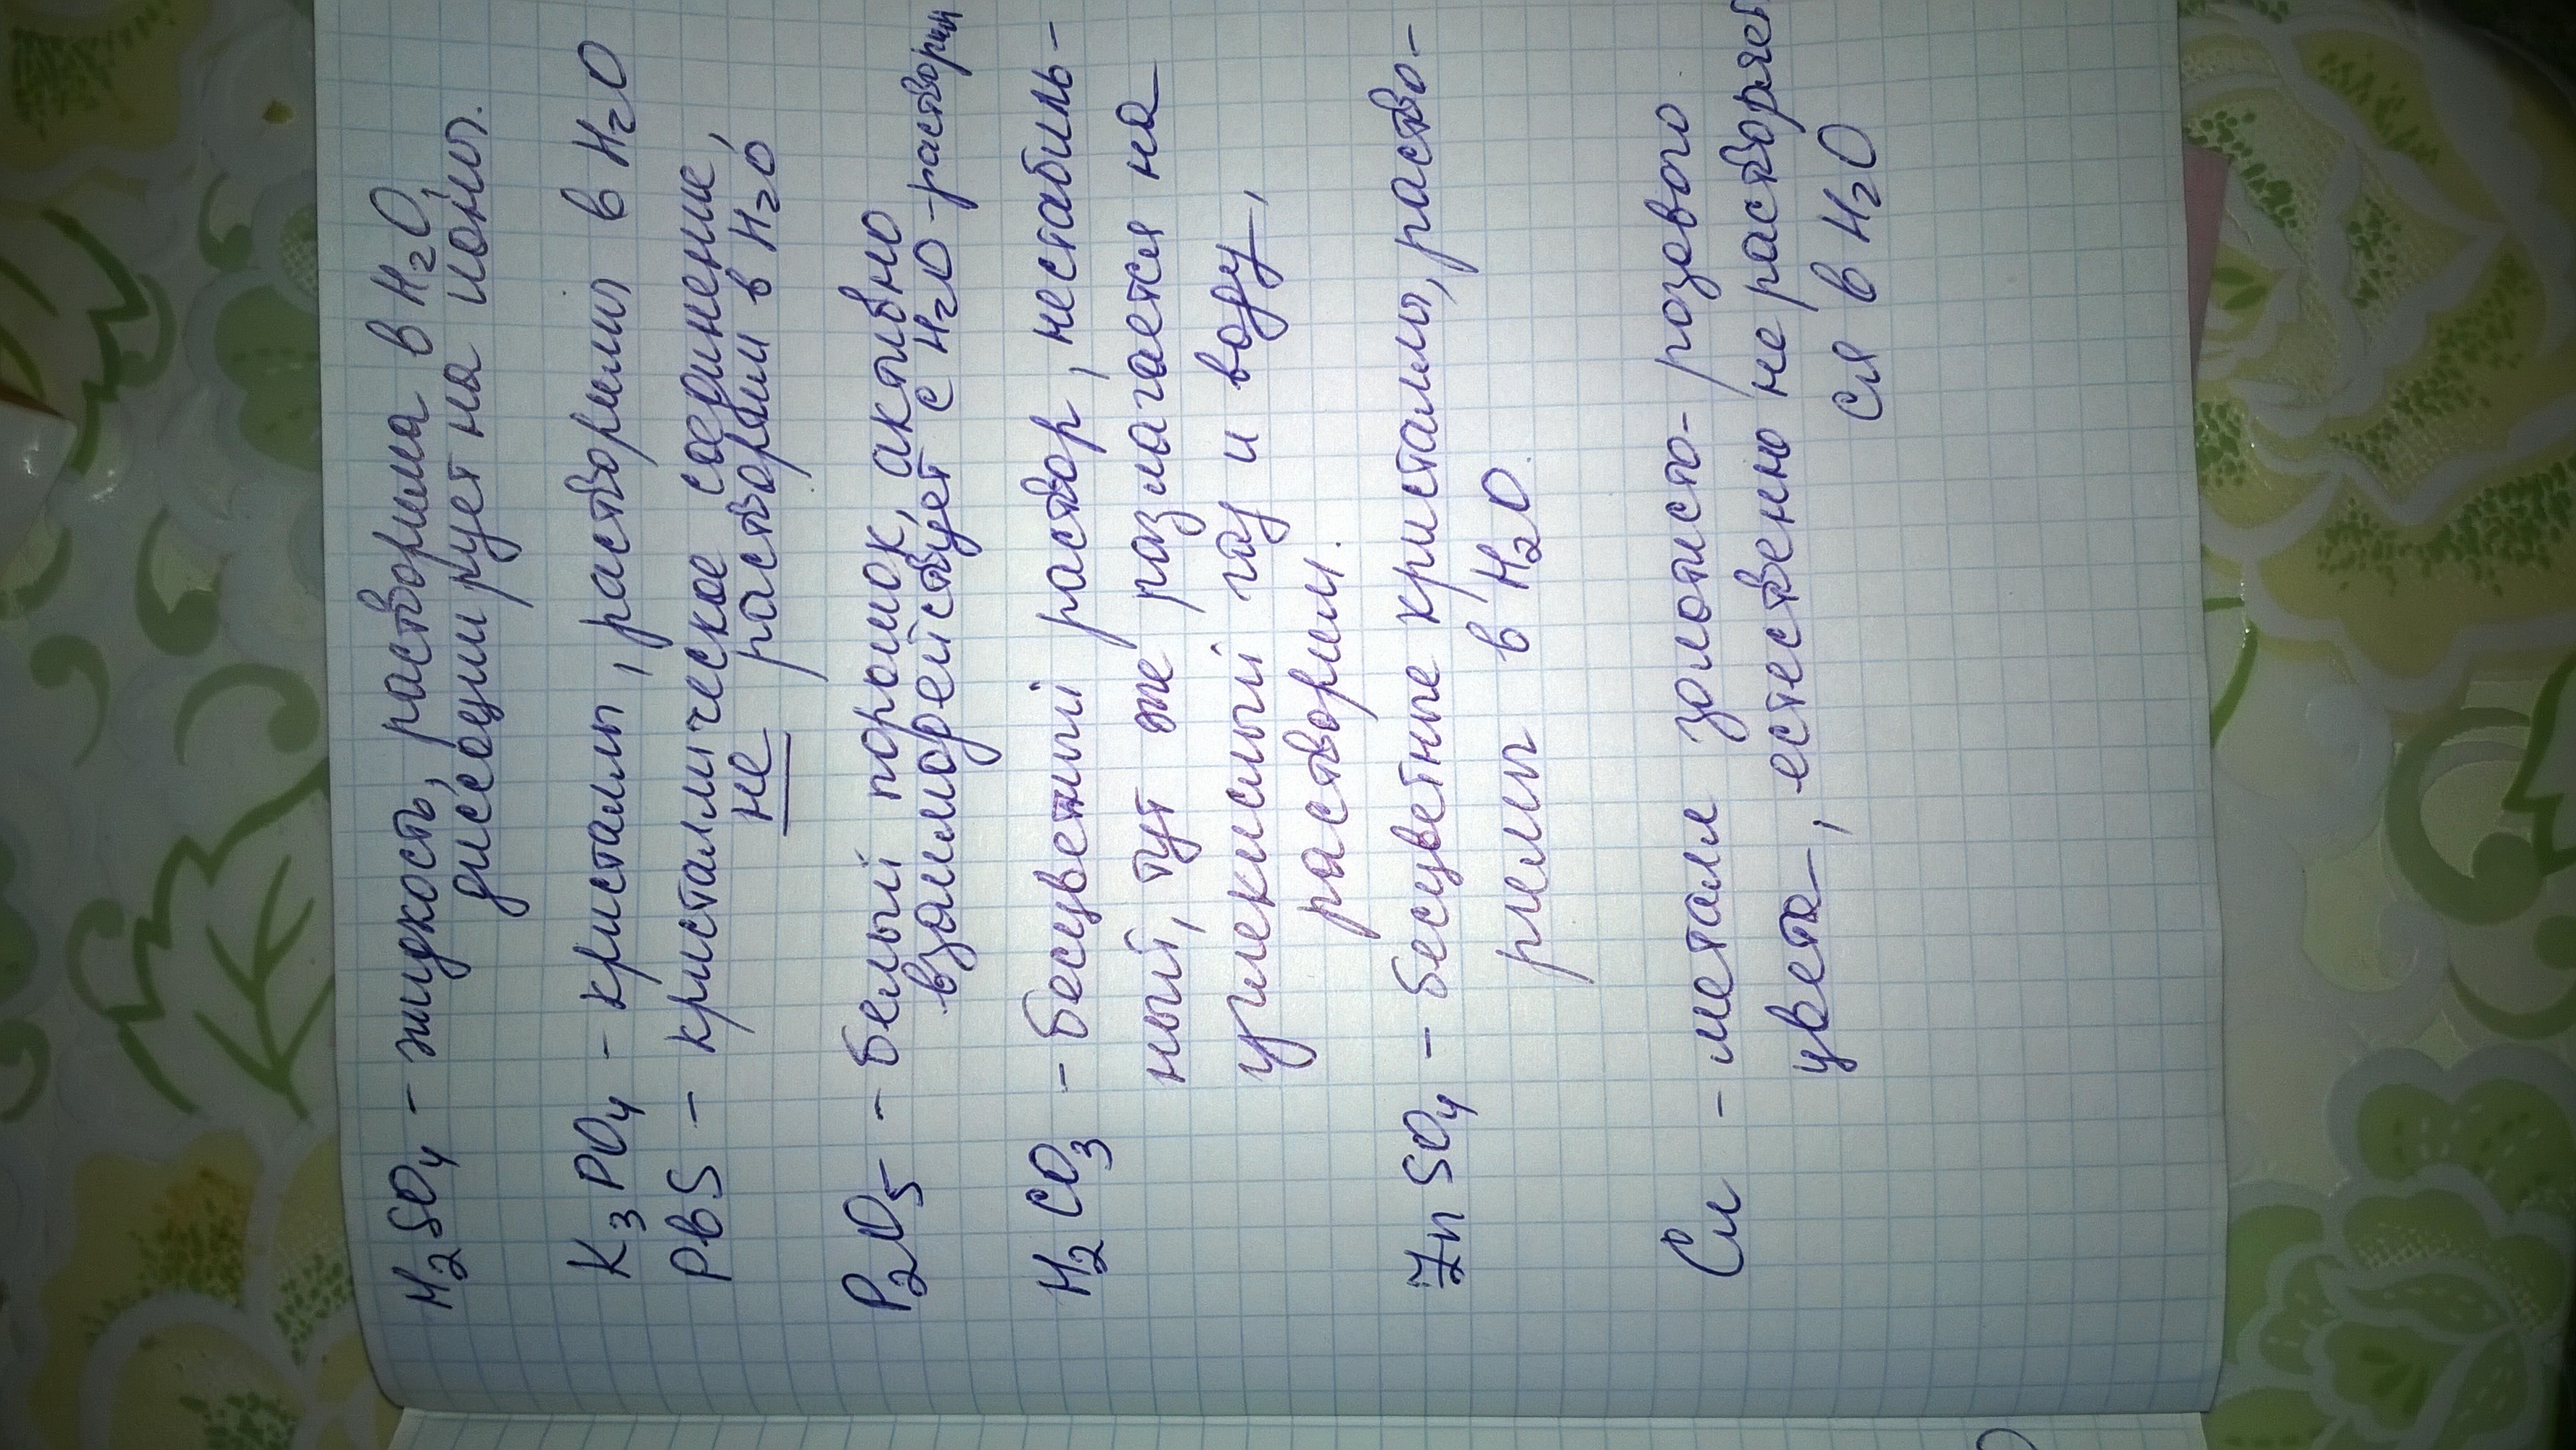 H₂SO₄ – жидкость, растворима в H₂O,
диссоциирует на ионы.
K₃PO₄ – кристаллы, растворимы в H₂O
PbS – кристаллическое соединение,
не растворим в H₂O
P₂O₅ – белый порошок, активно
взаимодействует с H₂O - раствори
H₂CO₃ – бесцветный раствор, нестабиль-
ный, тут же разлагается на
углекислый газ и воду,
растворим.
ZnSO₄ – бесцветные кристаллы, раство-
римы в H₂O.
Cu – металл золотисто-розового
цвета, естественно не растворяет
ся в H₂O